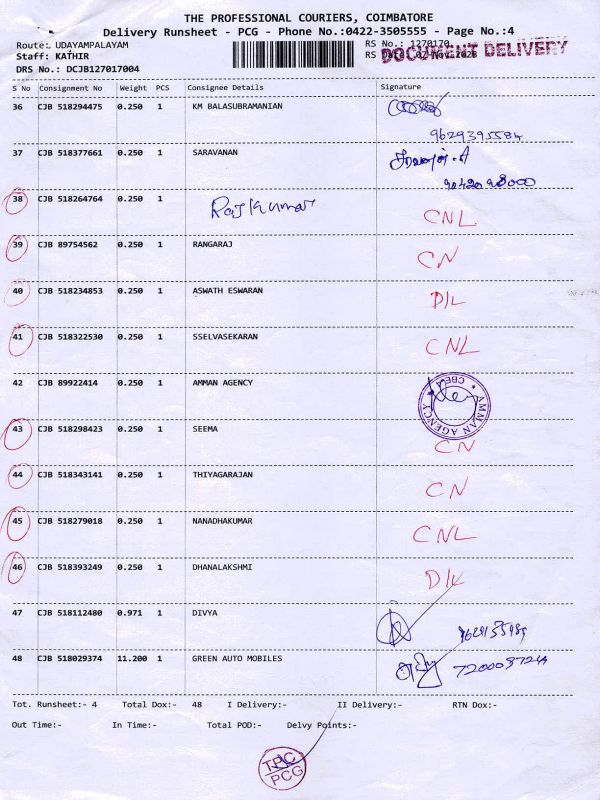 THE PROFESSIONAL COURIERS, COIMBATORE
Delivery Runsheet - PCG - Phone No.:0422-3505555 - Page No.:4
Route: UDAYAMPALAYAM RS No.: 1270170
Staff: KATHIR RS
DOCUMENT DELIVERY
DRS No.: DCJB127017004
S No Consignment No Weight PCS Consignee Details Signature
36 CJB 518294475 0.250 1 KM BALASUBRAMANIAN
9629395584
37 CJB 518377661 0.250 1 SARAVANAN
38 CJB 518264764 0.250 1 Rajkumar CNL
39 CJB 89754562 0.250 1 RANGARAJ CN
40 CJB 518234853 0.250 1 ASWATH ESWARAN D/L
41 CJB 518322530 0.250 1 SSELVASEKARAN CNL
42 CJB 89922414 0.250 1 AMMAN AGENCY AMMAN AGENCY CBE
43 CJB 518298423 0.250 1 SEEMA CN
44 CJB 518343141 0.250 1 THIYAGARAJAN CN
45 CJB 518279018 0.250 1 NANADHAKUMAR CNL
46 CJB 518393249 0.250 1 DHANALAKSHMI D/L
47 CJB 518112480 0.971 1 DIVYA
48 CJB 518029374 11.200 1 GREEN AUTO MOBILES
Tot. Runsheet:- 4 Total Dox:- 48 I Delivery:- II Delivery:- RTN Dox:-
Out Time:- In Time:- Total POD:- Delvy Points:-
TPC
PCG